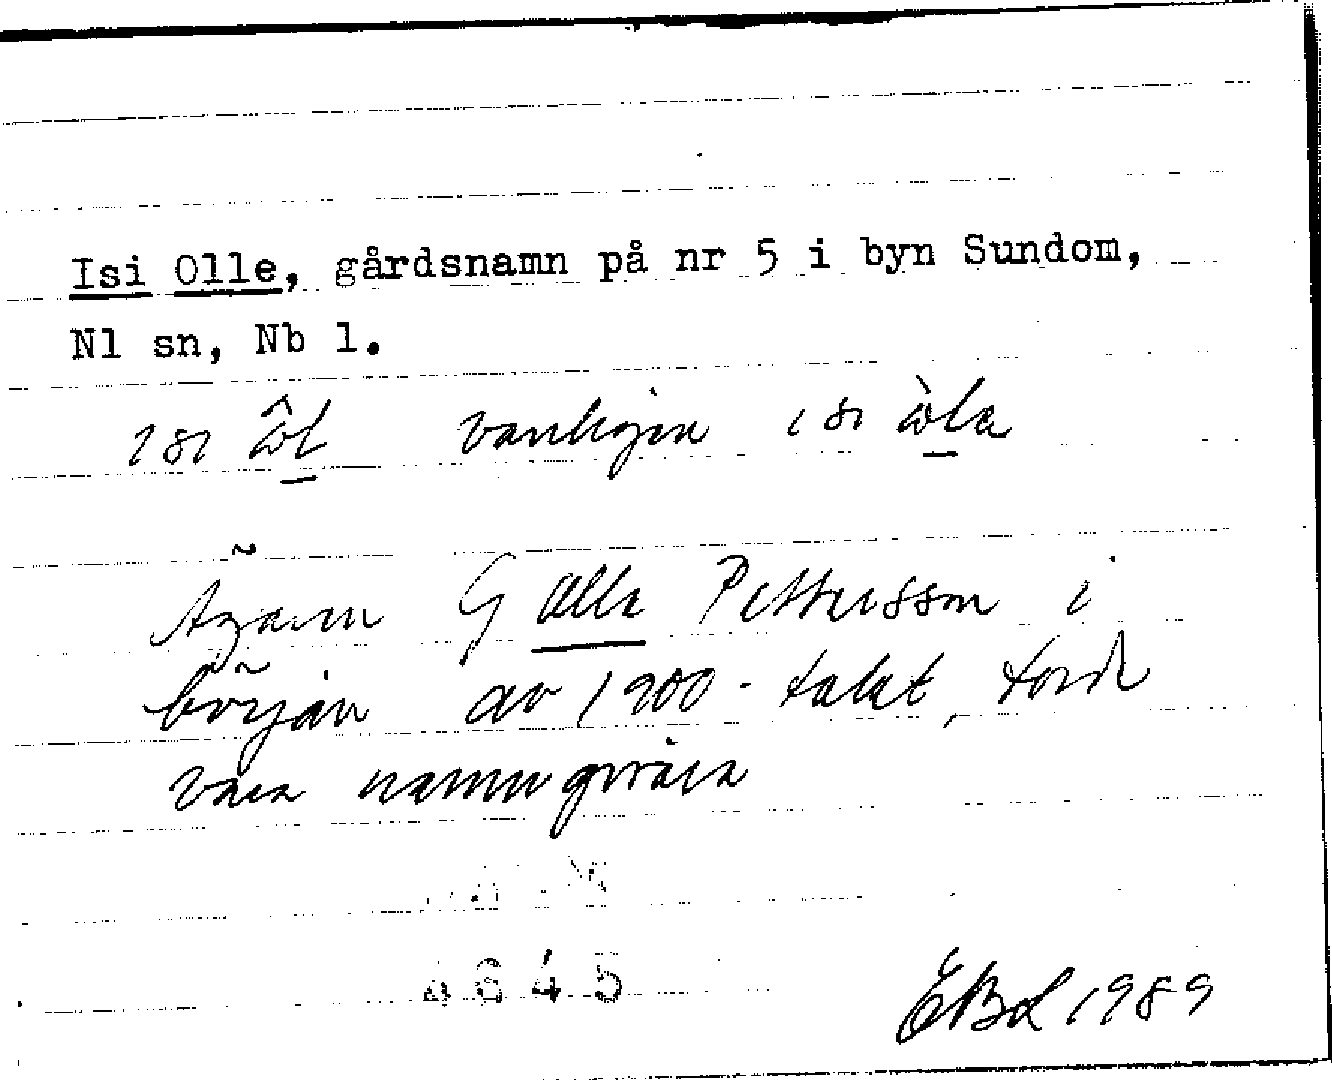 Isi Olle, gårdsnamn på nr 5 i byn Sundom,
Nl sn, Nb l.
isi vanligen isi
Ägaren G Olle Pettersson i
början av 1900-talet, torde
vara namngivare
4645
EBd 1989